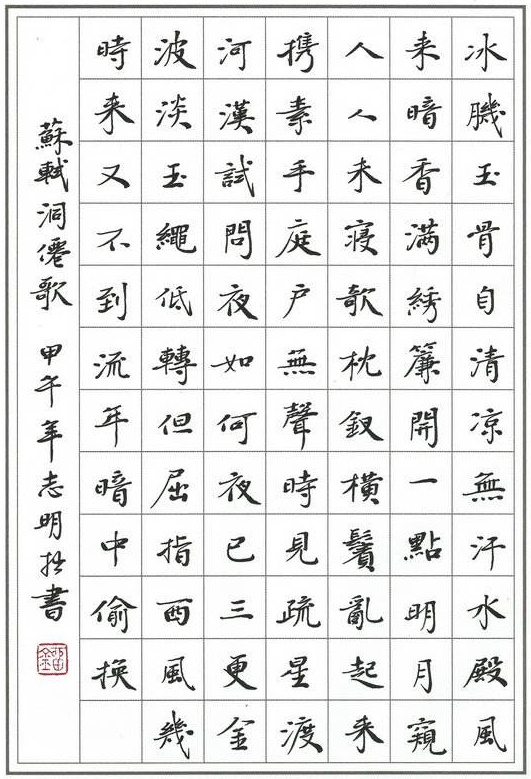 冰𦠄玉骨自清凉無汗水殿風
来暗香满綉簾開一點明月窺
人人未寝欹枕釵橫鬢亂起来
携素手庭户無聲時見疏星渡
河漢試問夜如何夜已三更金
波淡玉繩低轉但屈指西風幾
時来又不到流年暗中偷换
蘇軾洞僊歌 甲午年志明抄書